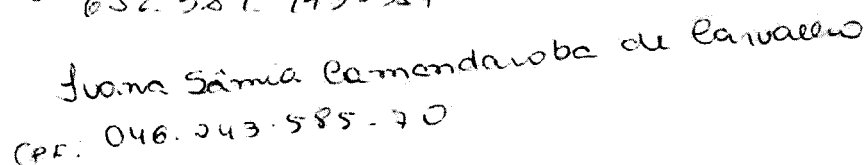 Ivana Sâmia Camandaroba de Carvalho
CPF: 046.243.585-70